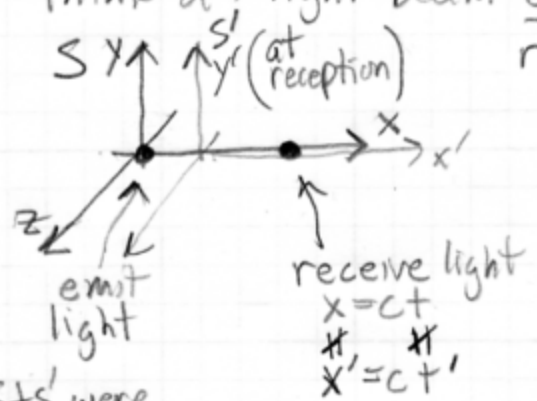 S y S'
y' (at reception)
x
x'
z
emit light
receive light
x = ct
∦ ∦
x' = ct'
sts' were